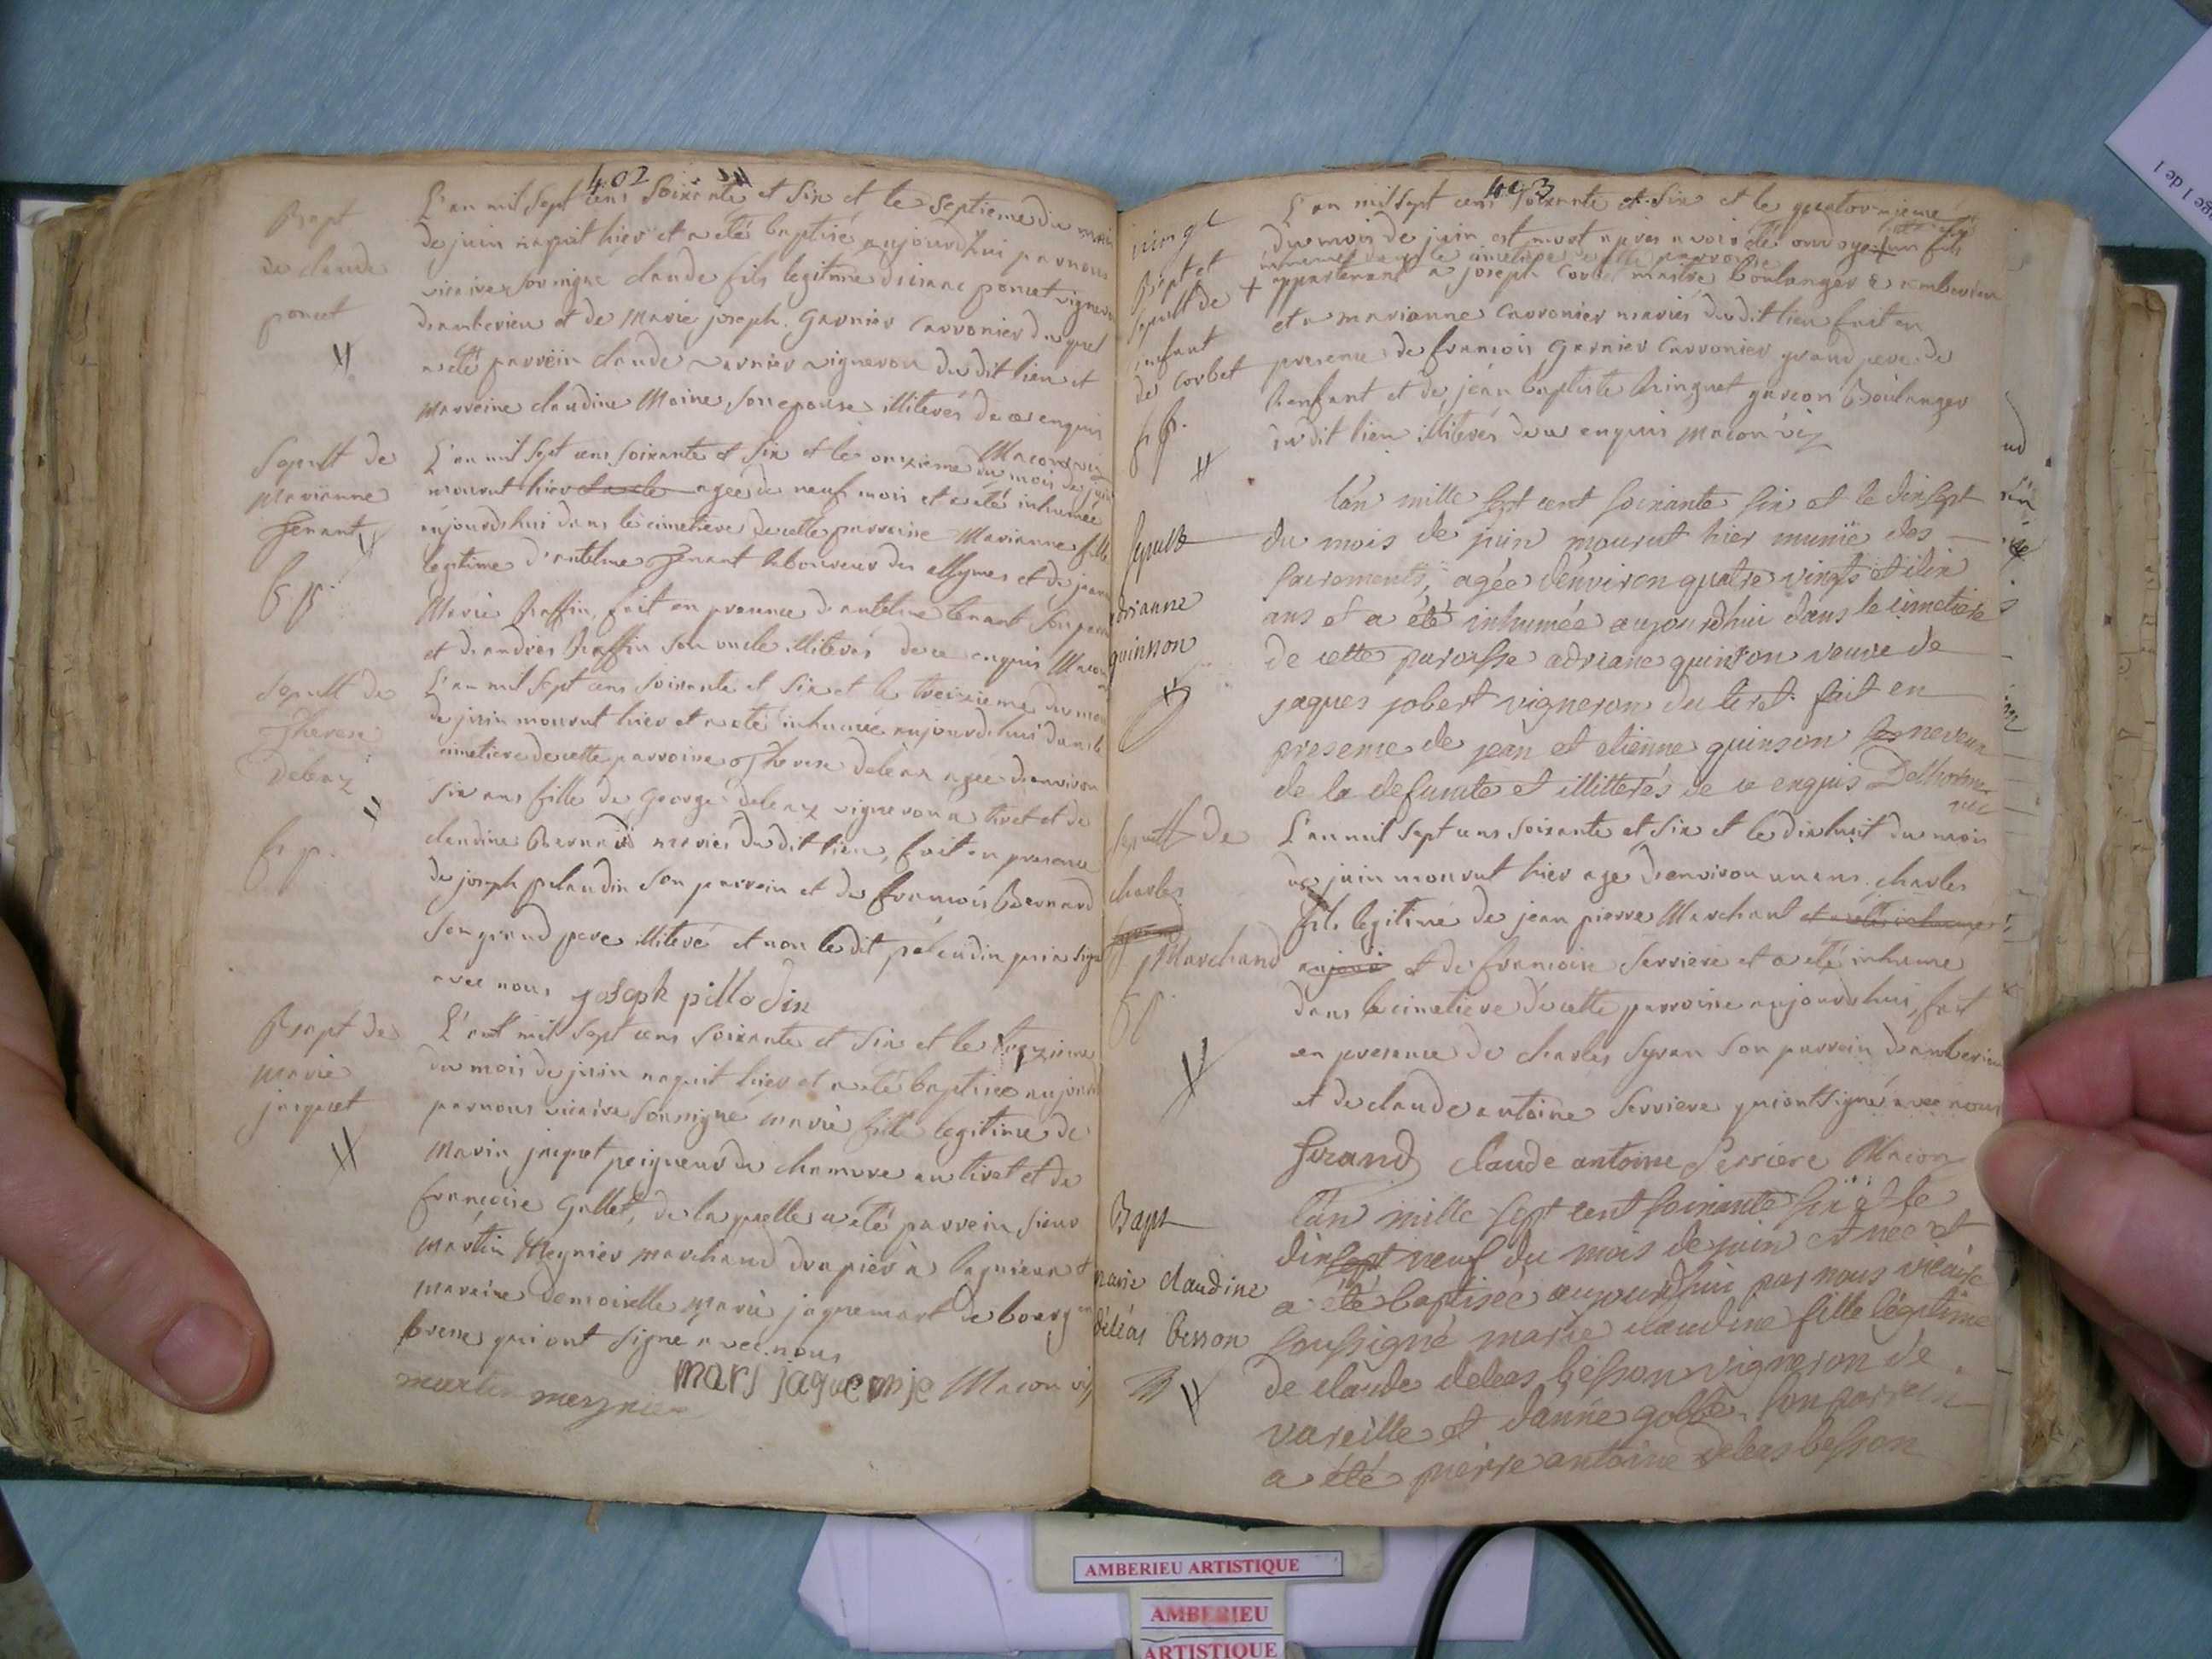 402
Bapt
de claude
poncet
L'an mil sept cens soixante et six et le septieme du mois
de juin naquit hier et a eté baptisé aujourdhui par nous
vicaire soussigné claude fils legitime d'isaac poncet vigneron
d'amberieu et de Marie joseph Garnier Carronier duquel
a eté parrein claude vernier vigneron du dit lieu et
marreine claudine Moine son epouse illiterés de ce enquis
Macon vic
Sepult de
Marianne
Tenant
L'an mil sept cens soixante et six et le onzieme du mois de juin
mourut hier agee de neuf mois et a eté inhumée
aujourdhui dans le cimetiere de cette parroisse Marianne fille
legitime d'antelme Tenant laboureur des allymes et de jeanne
Marie Raffin, fait en presence d'antelme tenant son parrein
et d'andré Raffin son oncle illiterés de ce enquis Macon
Sepult de
Therese
Deleaz
L'an mil sept cens soixante et six et le treizieme du mois
de juin mourut hier et a eté inhumée aujourdhui dans le
cimetiere de cette parroisse Therese deleaz agee d'environ
six ans fille de George deleaz vigneron a tiret et de
claudine Bernard mariés du dit lieu, fait en presence
de joseph pelaudin son parrein et de francois Bernard
son grand pere illiteré et non le dit pelaudin qui a signé
avec nous joseph pillodin
Bapt de
Marie
jaquet
L'an mil sept cens soixante et six et le treizieme
du mois de juin naquit hier et a eté baptisée aujourdhui
par nous vicaire soussigné marie fille legitime de
Marin jaquet peigneur de chanvre au tiret et de
francoise Gallet, de laquelle a eté parrein sieur
Martin Meynier marchand drapier à lagnieu et
mareine demoiselle Marie jaquemart de bourg en
bresse qui ont signé avec nous
martin meynier mari jaquemje Macon vic
403
Bapt et
sepult de
enfant
de Corbet
L'an mil sept cens soixante et six et le quatorzieme
du mois de juin est mort apres avoir été ondoyé un fils
inhumé dans le cimetiere de cette parroisse
+ appartenant a joseph Corbet maitre boulanger a amberieu
et a marianne Carronier mariés du dit lieu fait en
presence de francois Garnier Carronier grand pere de
l'enfant et de jean baptiste Ringuet garcon Boulanger
du dit lieu illiterés de ce enquis Macon vic
sepult
adrianne
quinson
l'an mille sept cent soixante six et le dixsept
du mois de juin mourut hier munie des
sacrements, agée d'environ quatre vingts et dix
ans et a été inhumée aujourdhui dans le cimetiere
de cette paroisse adriane quinson veuve de
jaques jobert vigneron du tiret fait en
presence de jean et etienne quinson neveux
de la defunte et illitterés de ce enquis Delhorme
vic
sepult de
charles
Marchand
L'an mil sept cens soixante et six et le dixhuit du mois
de juin mourut hier age d'environ un ans charles
fils legitime de jean pierre Marchand et a eté inhumé
aujour et de francoise serriere et a eté inhumé
dans le cimetiere de cette parroisse aujourdhui, fait
en presence de charles syran son parrein d'amberieu
et de claude antoine serriere qui ont signé avec nous
Sirand claude antoine serriere Macon
Bapt
marie claudine
déléas besson
l'an mille sept cent soixante six et le
dix sept neuf du mois de juin est née et
a été baptisée aujourdhui par nous vicaire
soussigné marie claudine fille légitime
de claude deleas besson vigneron de
vareille et d'anne gollet son parrein
a été pierre antoine deleas besson
AMBERIEU ARTISTIQUE
AMBERIEU
ARTISTIQUE